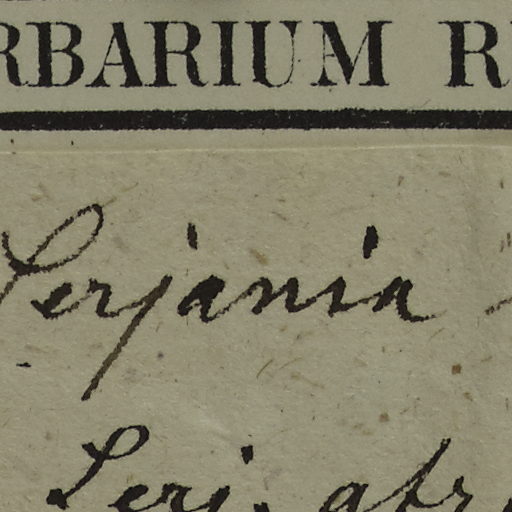 RBARIUM R
Serjania
Serj. atr